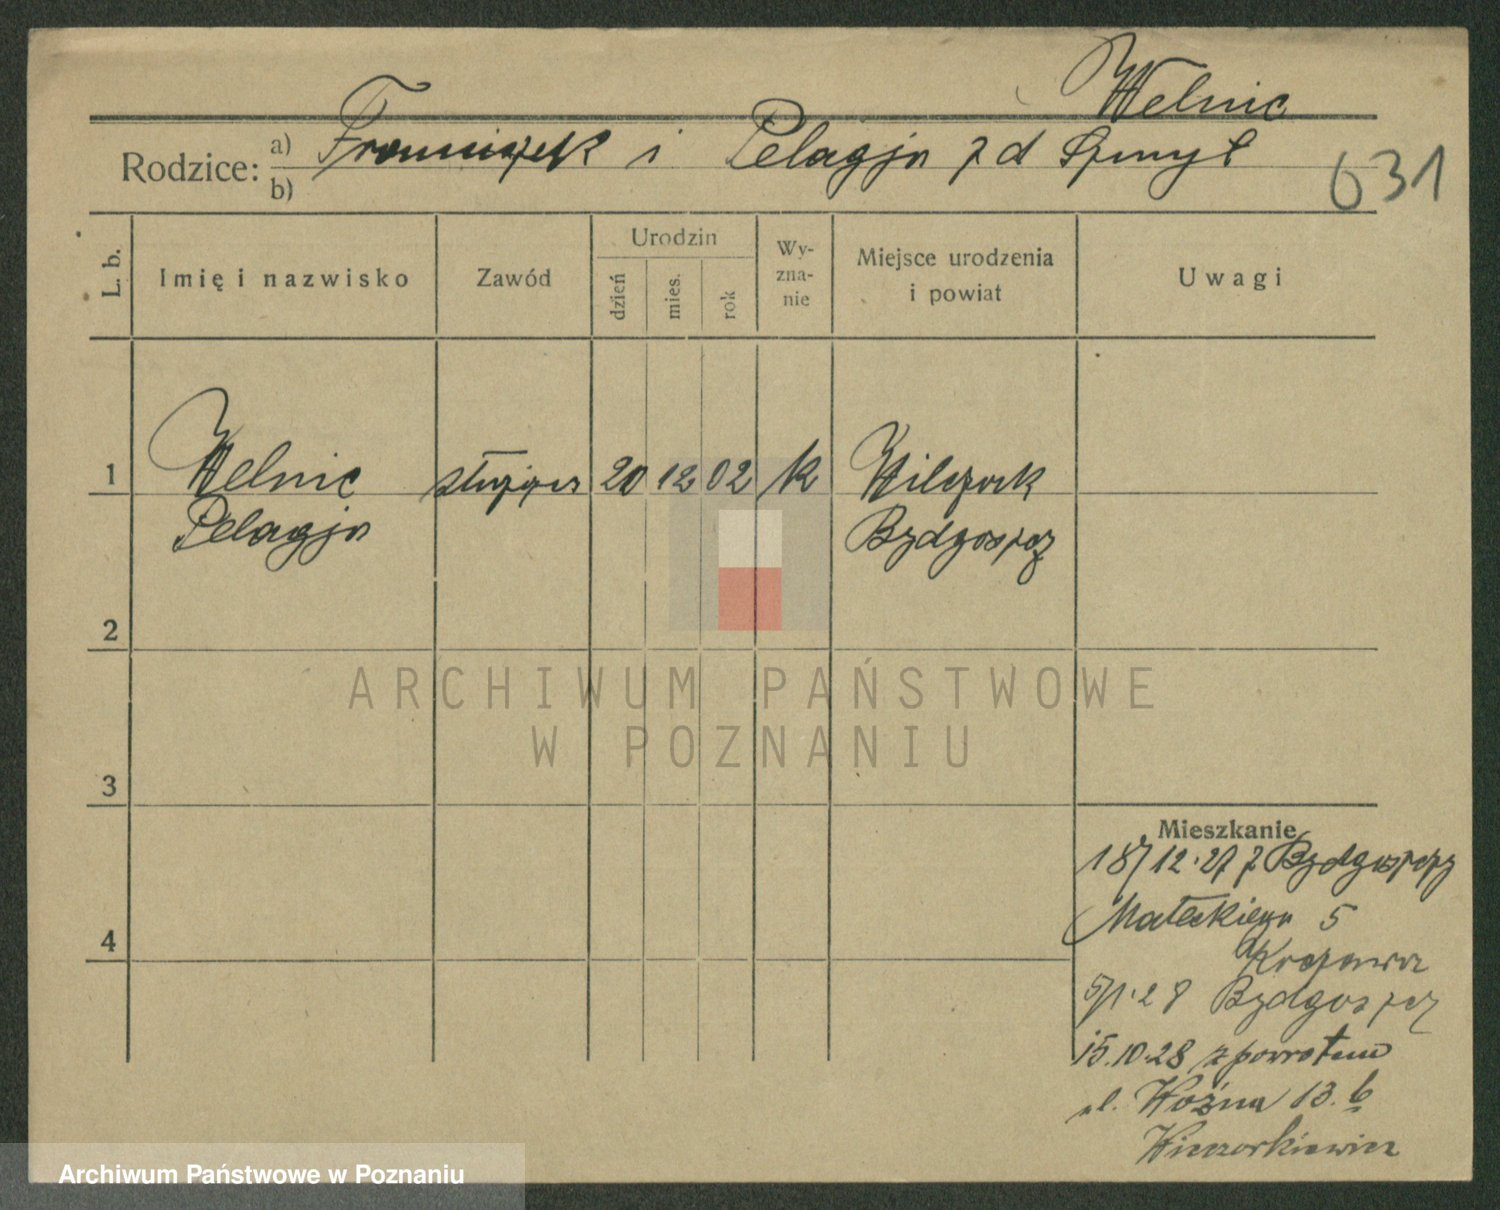 Welnic
Rodzice: a) Franciszek i Pelagja z d Szmyt
b)
631
L. b.
Imię i nazwisko
Zawód
Urodzin
dzień
mies.
rok
Wy-
zna-
nie
Miejsce urodzenia
i powiat
Uwagi
1 Welnic służąca 20 12 02 k Wilczak
Pelagja Bydgoszcz
2
ARCHIWUM PAŃSTWOWE
W POZNANIU
3
Mieszkanie
18/12.27 z Bydgoszczy
Małeckiego 5
4
5/1.28 Bydgoszcz
15.10.28 z powrotem
ul. Woźna 13. b
Wieczorkiewicz
Archiwum Państwowe w Poznaniu